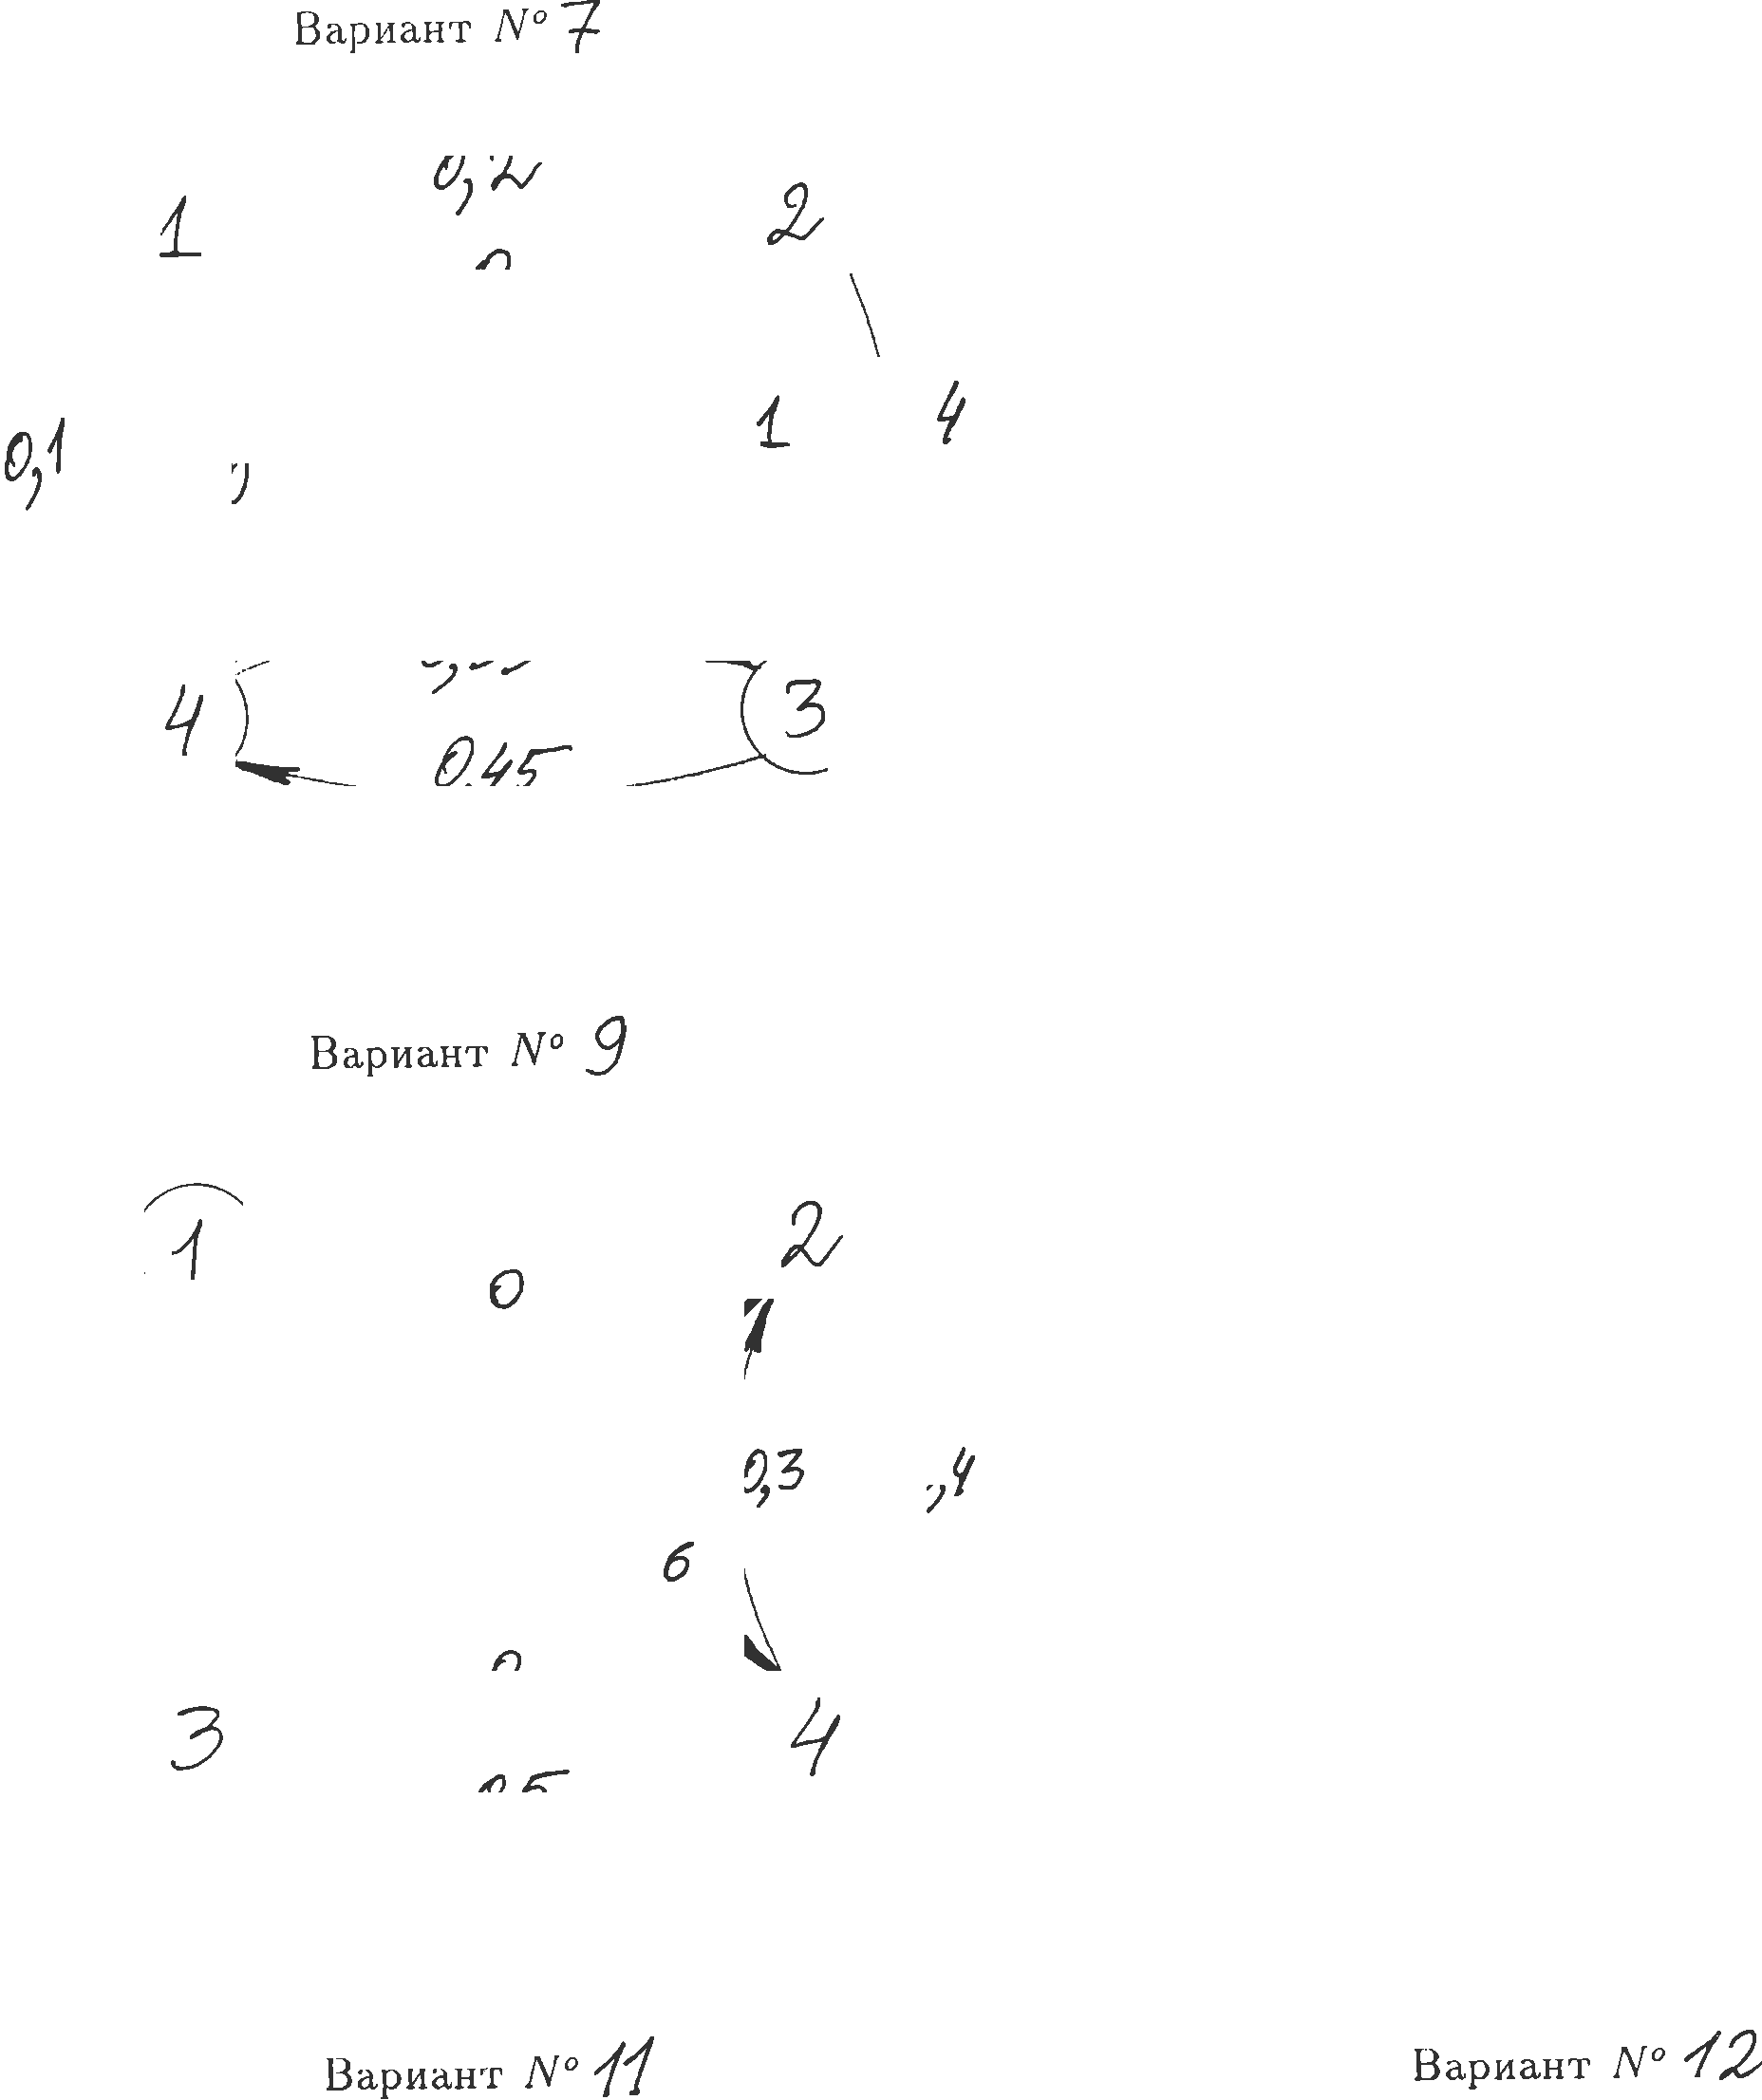 Вариант № 7
1
2
1 4
0,1
4 3
0,45
Вариант № 9
1 2
0
0,3 ,4
6
3 4
Вариант № 11 Вариант № 12